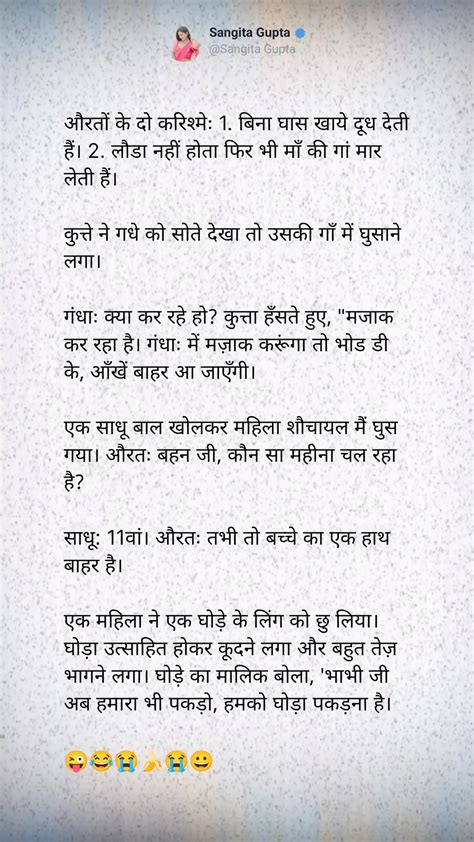 Sangita Gupta
@Sangita Gupta
औरतों के दो करिश्मेः 1. बिना घास खाये दूध देती
हैं। 2. लौडा नहीं होता फिर भी माँ की गां मार
लेती हैं।
कुत्ते ने गधे को सोते देखा तो उसकी गाँ में घुसाने
लगा।
गंधाः क्या कर रहे हो? कुत्ता हँसते हुए, "मजाक
कर रहा है। गंधाः में मज़ाक करूंगा तो भोड डी
के, आँखें बाहर आ जाएँगी।
एक साधू बाल खोलकर महिला शौचायल मैं घुस
गया। औरतः बहन जी, कौन सा महीना चल रहा
है?
साधू: 11वां। औरतः तभी तो बच्चे का एक हाथ
बाहर है।
एक महिला ने एक घोड़े के लिंग को छु लिया।
घोड़ा उत्साहित होकर कूदने लगा और बहुत तेज़
भागने लगा। घोड़े का मालिक बोला, 'भाभी जी
अब हमारा भी पकड़ो, हमको घोड़ा पकड़ना है।
😜😂😭🍌😭😀